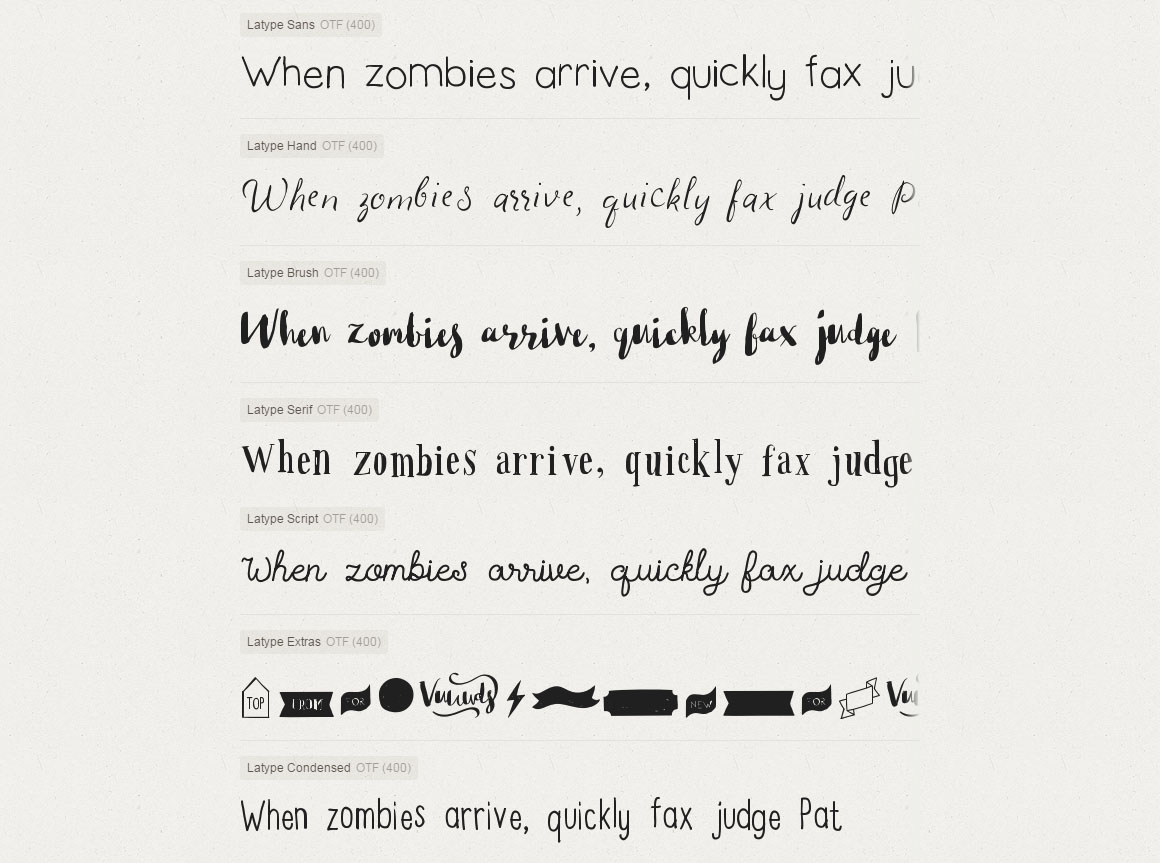 Latype Sans OTF (400)
When zombies arrive, quickly fax ju
Latype Hand OTF (400)
When zombies arrive, quickly fax judge P
Latype Brush OTF (400)
When zombies arrive, quickly fax judge
Latype Serif OTF (400)
When zombies arrive, quickly fax judge
Latype Script OTF (400)
When zombies arrive, quickly fax judge
Latype Extras OTF (400)
TOP FROM FOR NEW FOR
Latype Condensed OTF (400)
When zombies arrive, quickly fax judge Pat